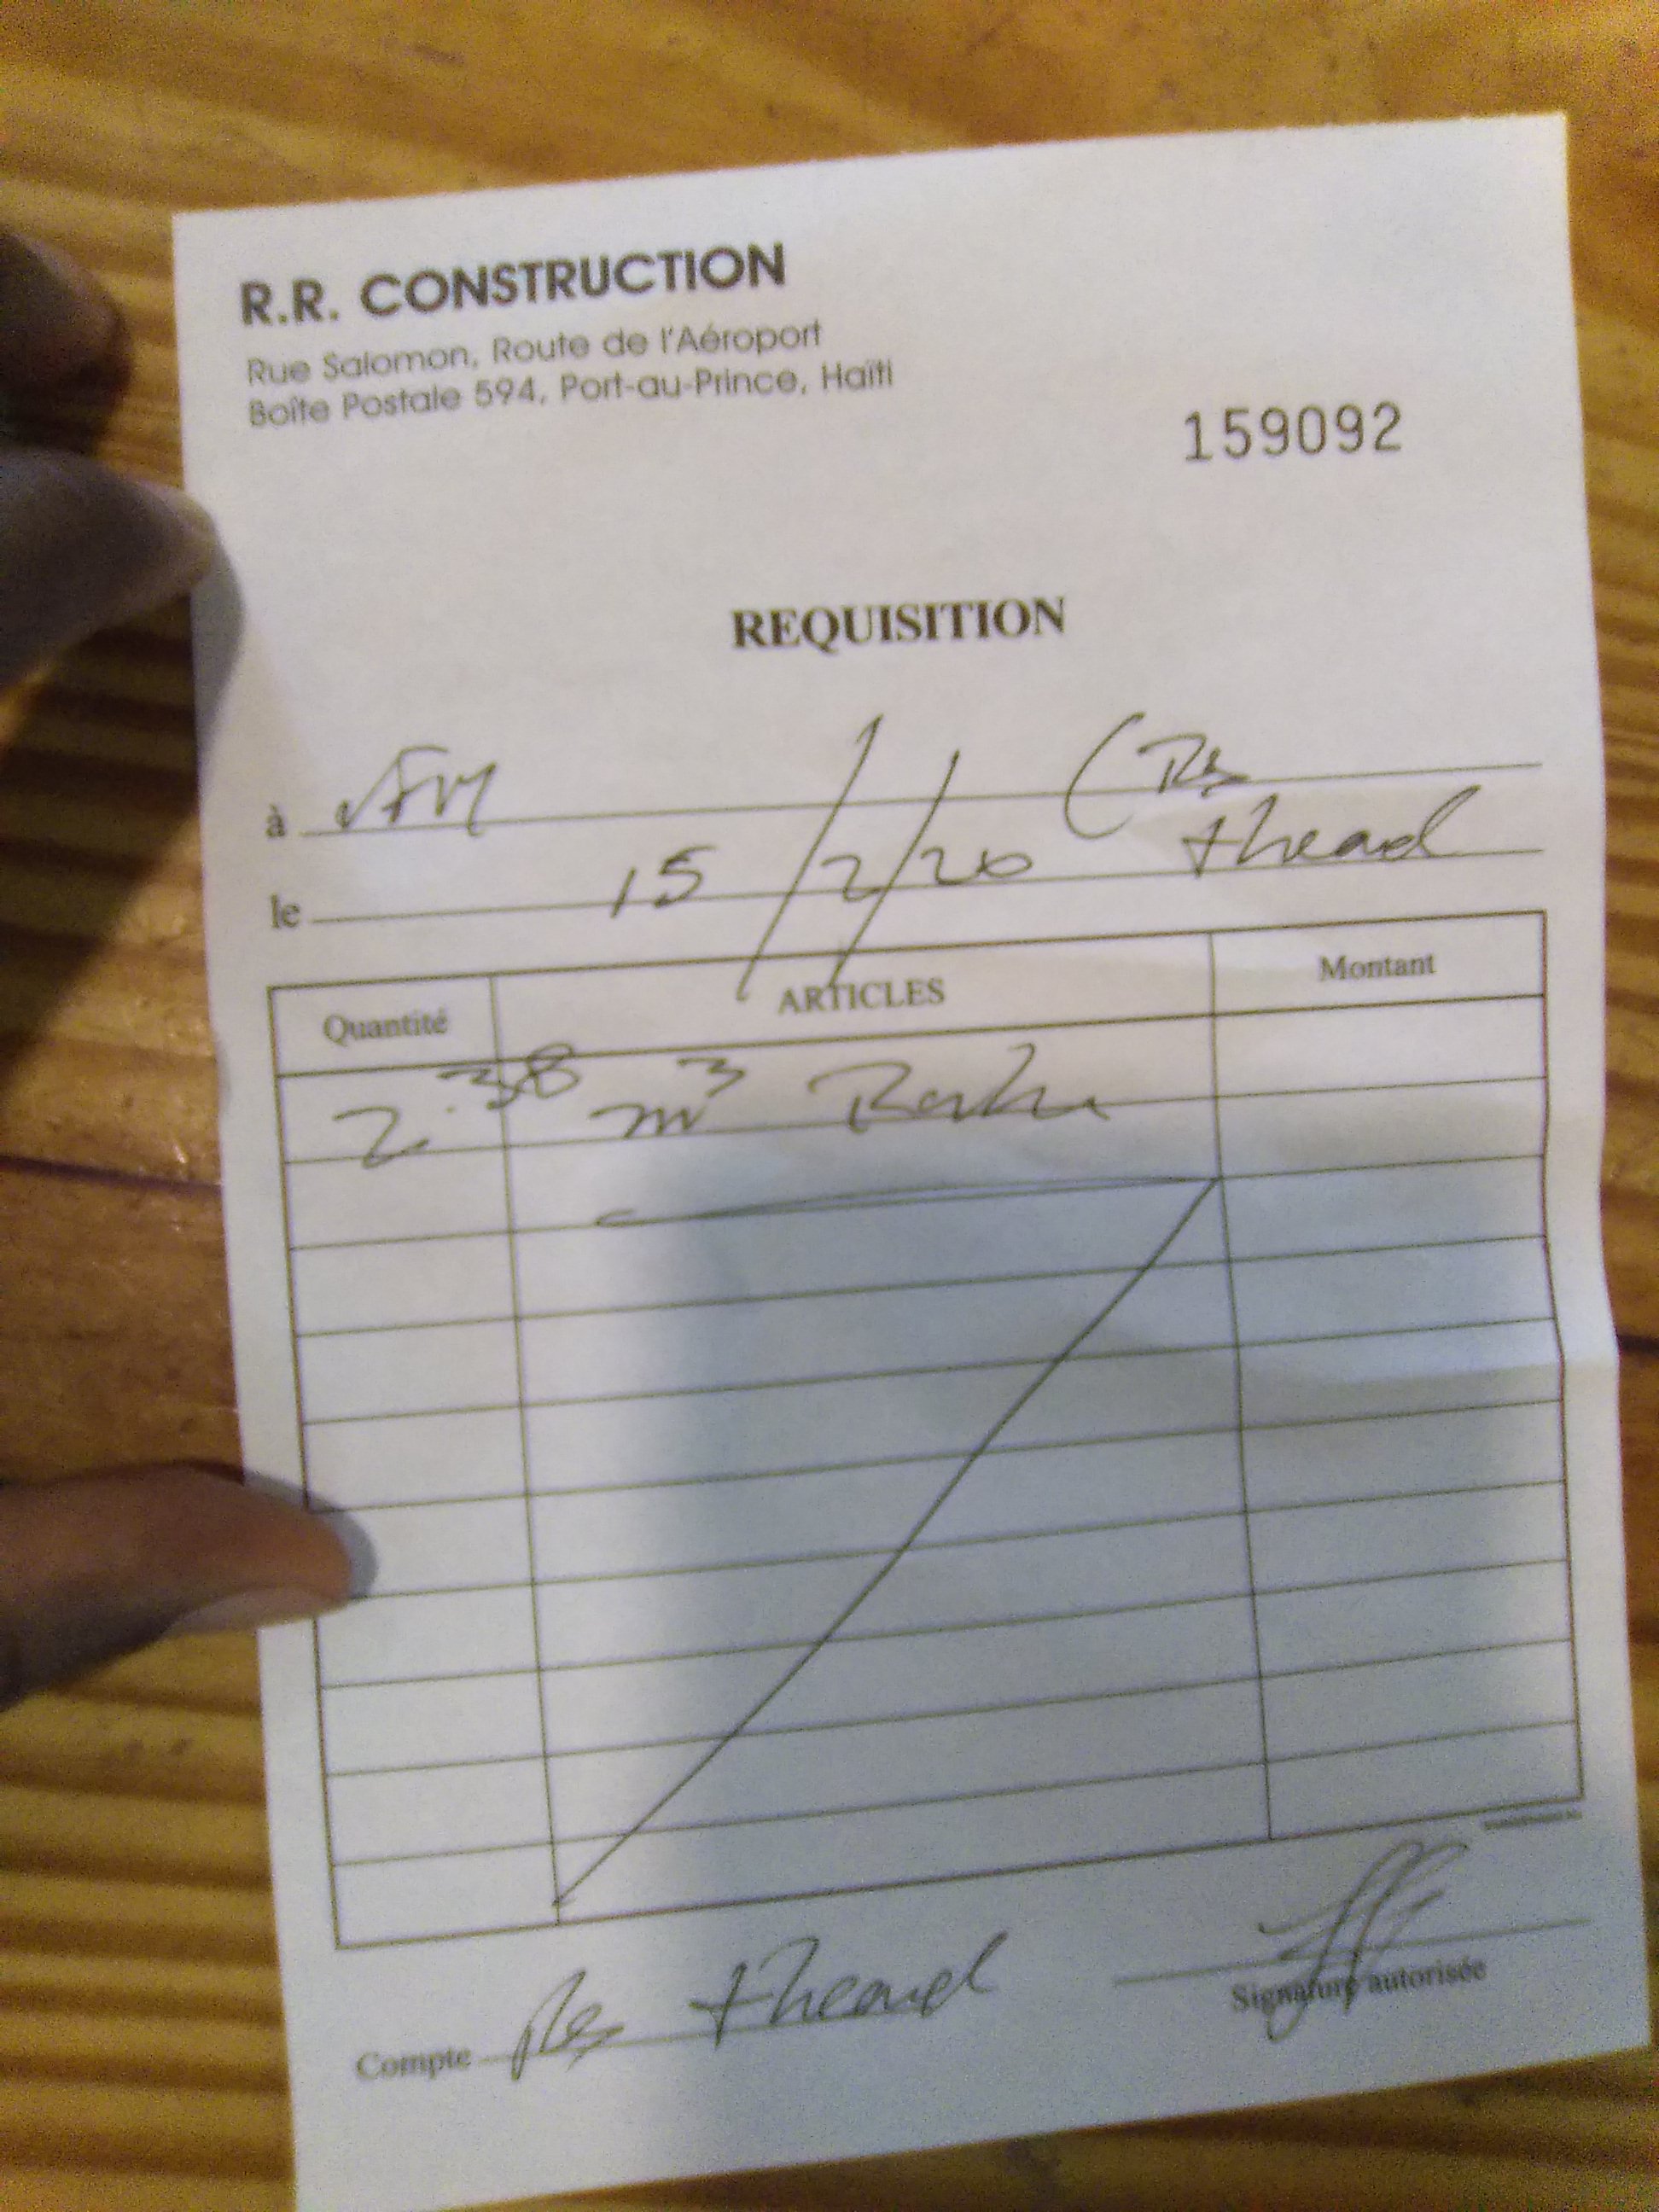 R.R. CONSTRUCTION
Rue Salomon, Route de l'Aéroport
Boîte Postale 594, Port-au-Prince, Haïti
159092
REQUISITION
à
(Res
le 15/2/20 thead
Quantité ARTICLES Montant
2.38 m3
Compte Res thead
Signature autorisée